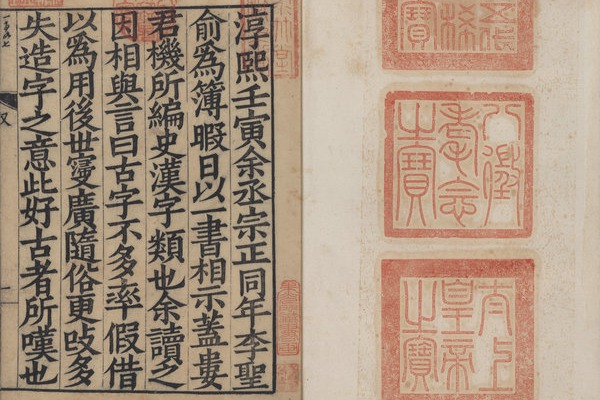 淳熙壬寅余丞宗正同年李聖
俞為簿暇日以一書相示蓋婁
君機所編史漢字類也余讀之
因相與言曰古字不多率假借
以為用後世寖廣隨俗更改多
失造字之意此好古者所嘆也
八徵
耄念
之寶
太上
皇帝
之寶